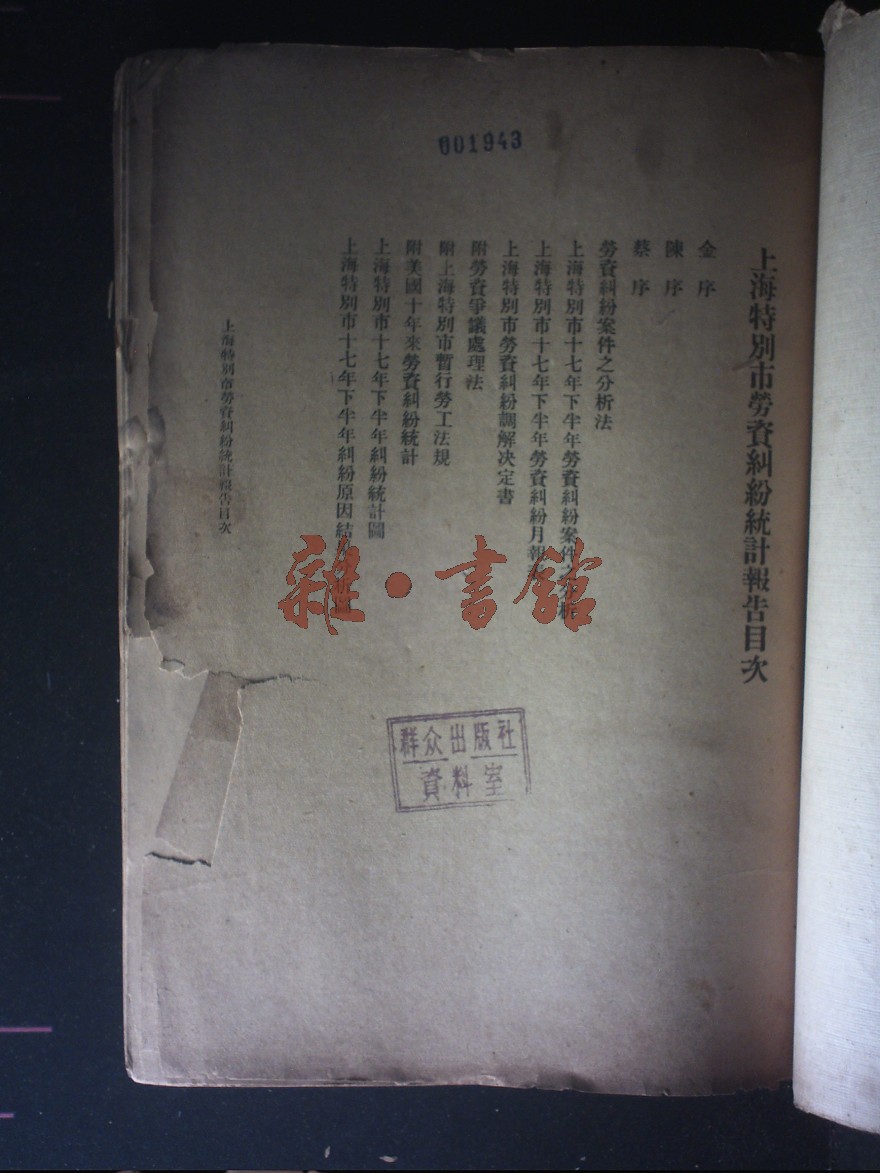 601943
上海特別市勞資糾紛統計報告目次
金序
陳序
蔡序
勞資糾紛案件之分析法
上海特別市十七年下半年勞資糾紛案件之分析
上海特別市十七年下半年勞資糾紛月報
上海特別市勞資糾紛調解決定書
附勞資爭議處理法
附上海特別市暫行勞工法規
附美國十年來勞資糾紛統計
上海特別市十七年下半年糾紛統計圖
上海特別市十七年下半年糾紛原因結
上海特別市勞資糾紛統計報告目次
雜·書館
群众出版社
資料室